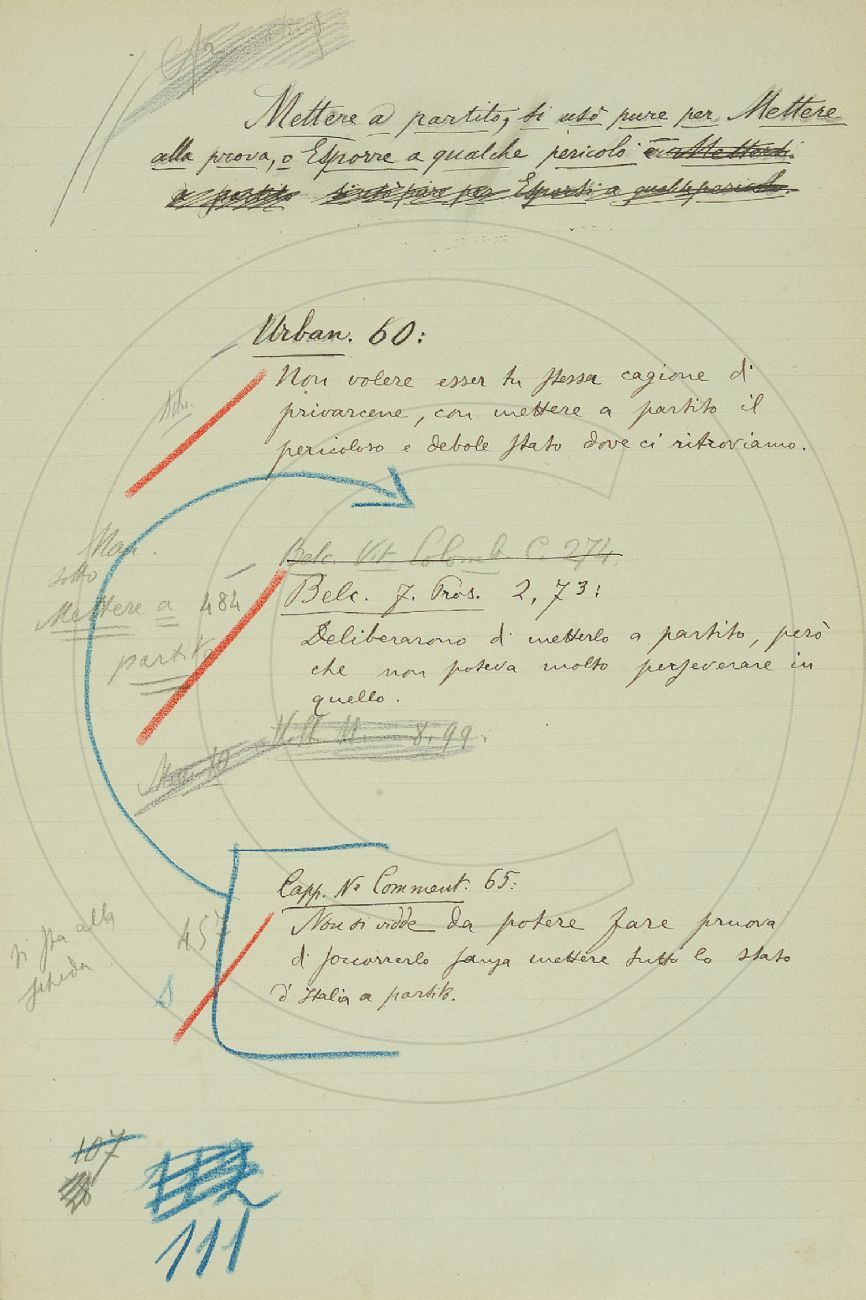 Mettere a partito, si usò pure per Mettere
alla prova, o Esporre a qualche pericolo o a Mettersi
a partito si usò pure per Esporsi a qualche pericolo.
Urban. 60:
Non volere esser tu stessa cagione di
privarcene, con mettere a partito il
pericoloso e debole stato dove ci ritroviamo.
Man.
sotto
Mettere a
partito
484
Belc. Vit. Colomb. C. 274.
Belc. f. Pros. 2, 73:
Deliberarono di metterlo a partito, però
che non poteva molto perseverare in
quello.
8. 99.
Capp. N. Comment. 65:
Non si vidde da potere fare pruova
di soccorrerlo sanza mettere tutto lo stato
d'Italia a partito.
457
si sta alla
scheda
107
111